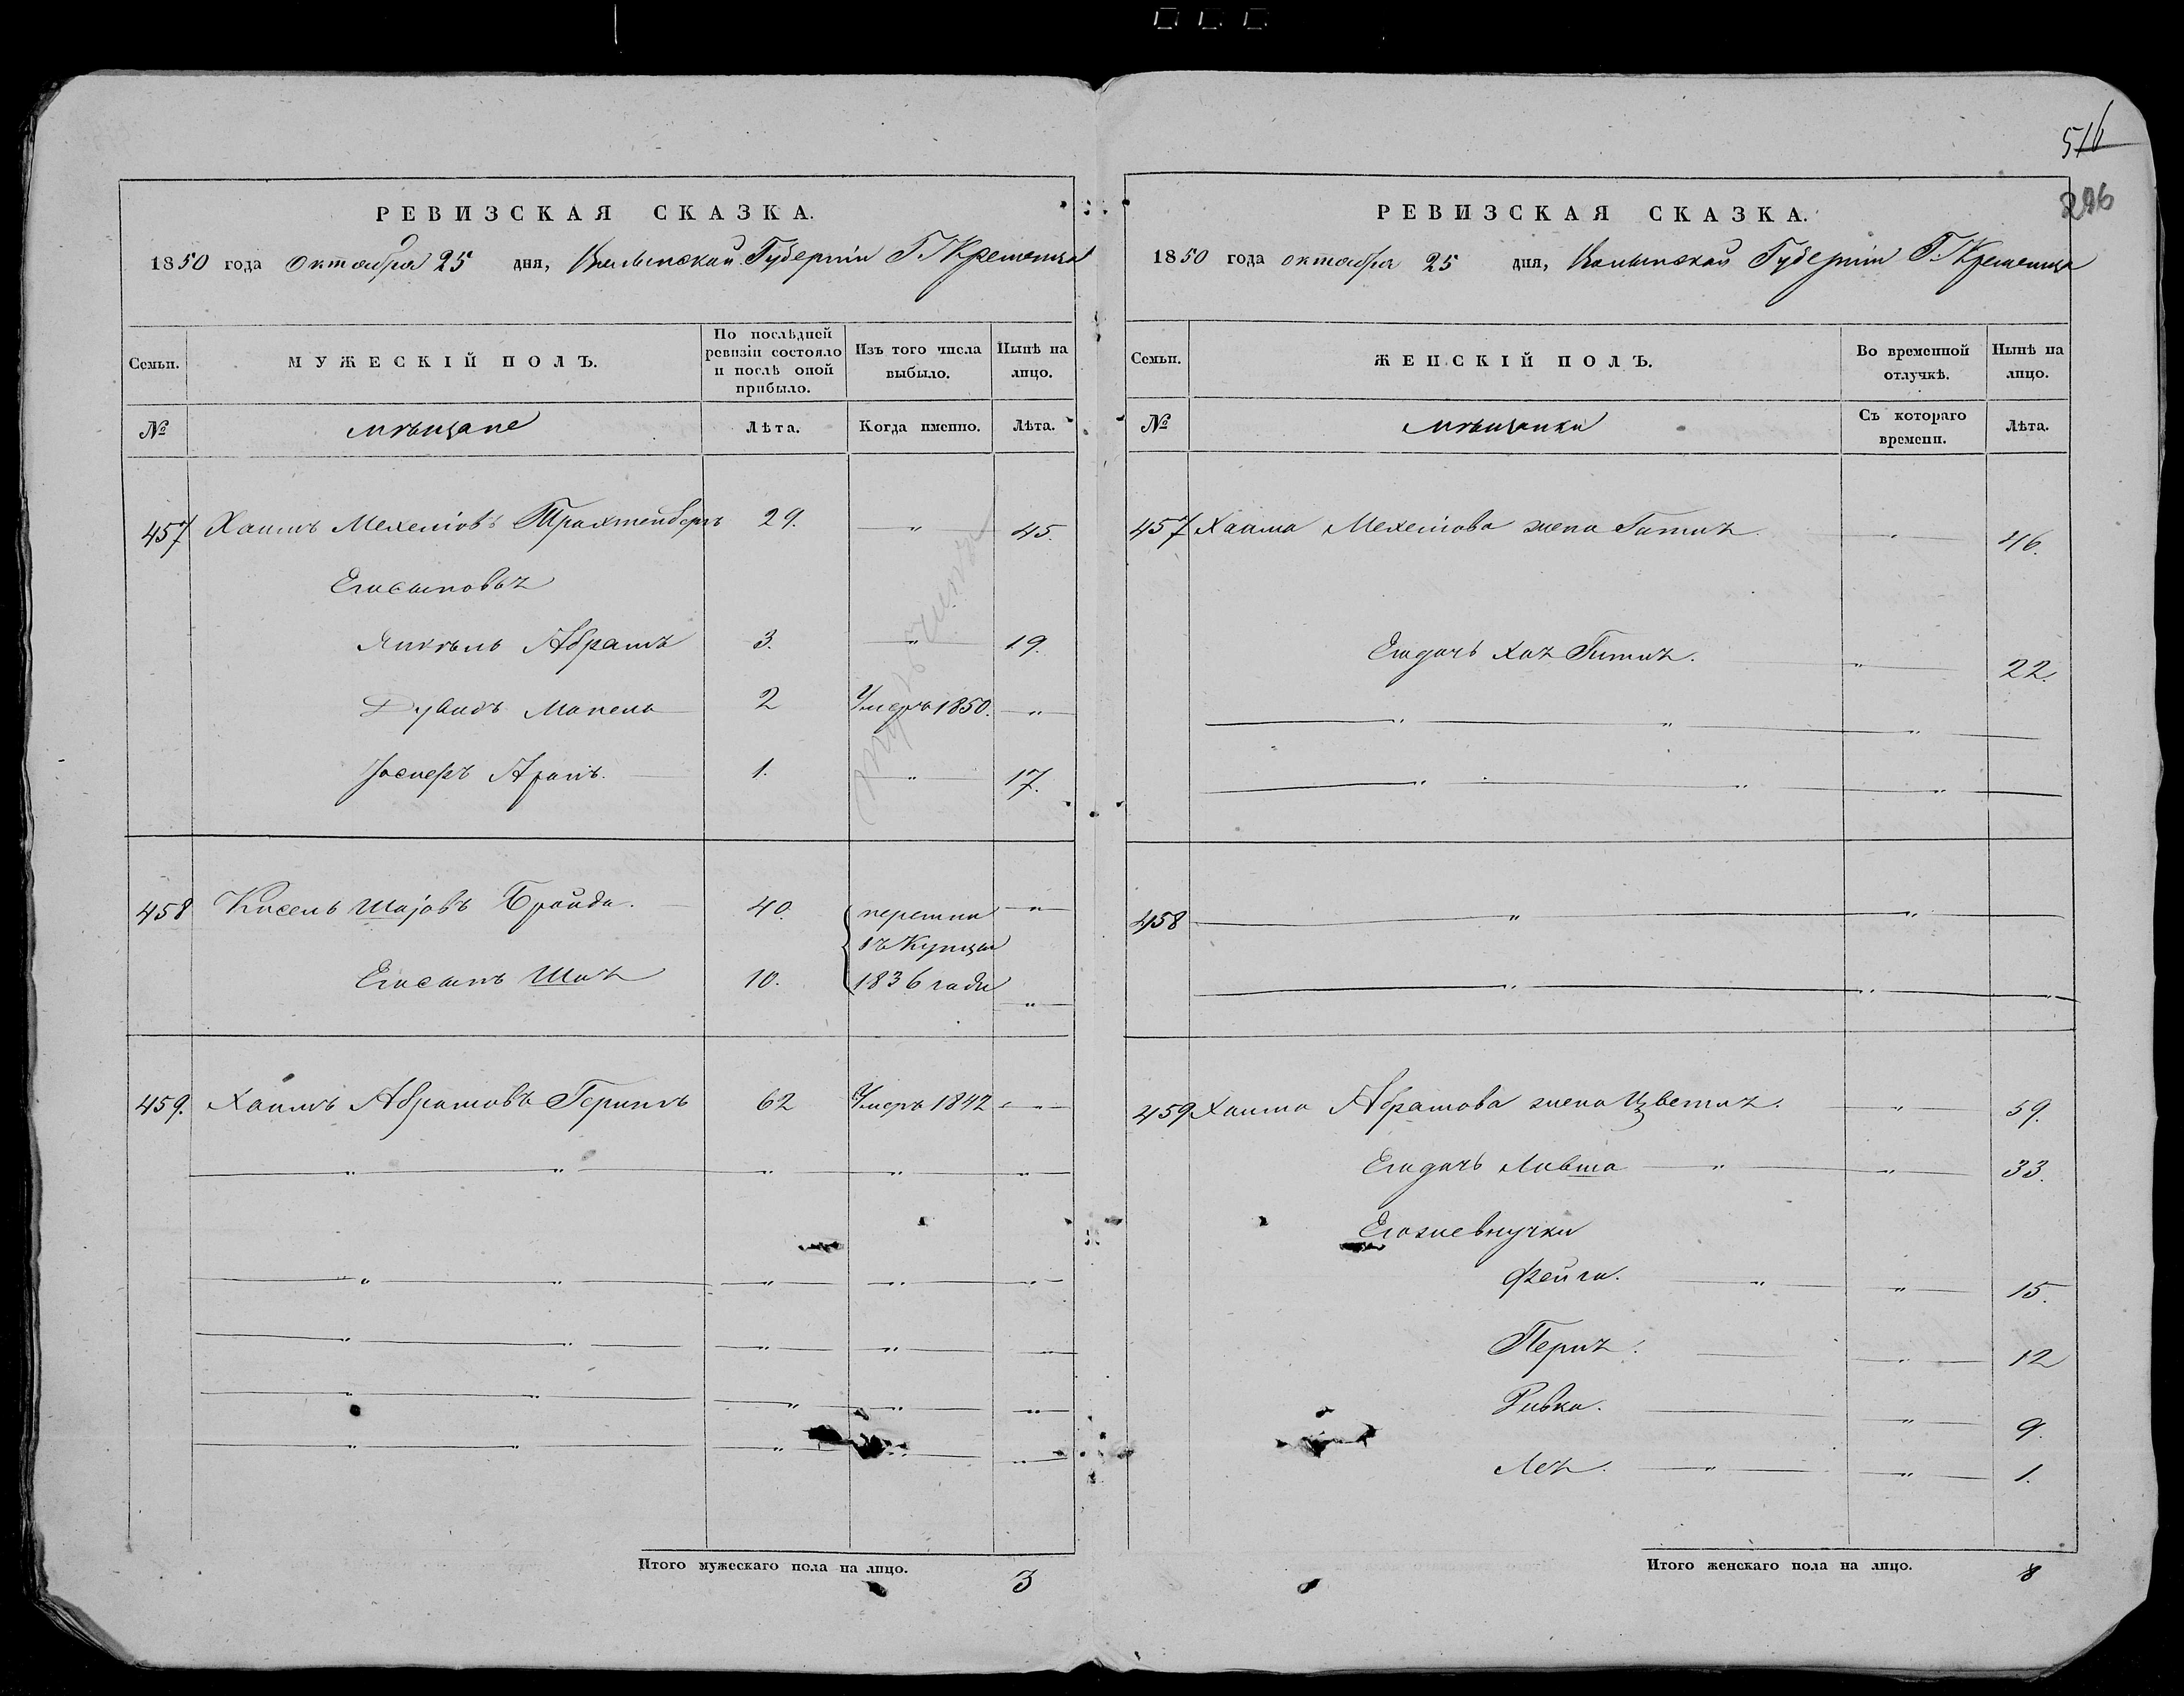 516
296
РЕВИЗСКАЯ СКАЗКА.
1850 года октября 25 дня, Волынской Губерніи Г. Кременца
Семьи. МУЖЕСКІЙ ПОЛЪ. По послѣдней ревизіи состояло и послѣ оной прибыло. Изъ того числа выбыло. Нынѣ на лицо.
№ мѣщане Лѣта. Когда именно. Лѣта.
457 Хаимъ Мехелювъ Трахтенберъ 29. " 45.
Его сыновья
Янкель Абрамъ 3. " 19.
Дувидъ Манель 2 Умеръ 1850. "
Іосифъ Аронъ. 1. " 17.
458 Кисель Шаjовъ Бройда. 40. перешли "
въ Купцы
Его сынъ Шая 10. 1836 года "
459. Хаимъ Абрамовъ Геринъ 62 Умеръ 1842 "
Итого мужескаго пола на лицо. 3
РЕВИЗСКАЯ СКАЗКА.
1850 года октября 25 дня, Волынской Губерніи Г. Кременца
Семьи. ЖЕНСКІЙ ПОЛЪ. Во временной отлучкѣ. Нынѣ на лицо.
№ мѣщанки Съ котораго времени. Лѣта.
457 Хаима Мехелюва жена Гитля " 46.
Его дочь Хая Гитля. " 22.
458 " "
459 Хаима Абрамова жена Цветля. " 59.
Его дочь Ливша " " 33.
Его же внучки
Фейга. " " 15.
Перля. " 12
Ривка. " 9.
Лея. " " 1.
Итого женскаго пола на лицо. 8